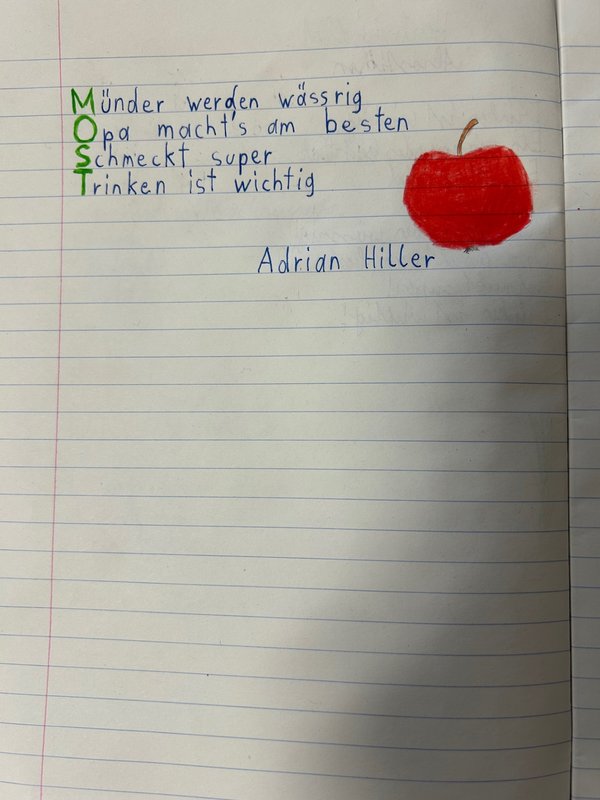 Münder werden wässrig
Opa macht's am besten
Schmeckt super
Trinken ist wichtig
Adrian Hiller